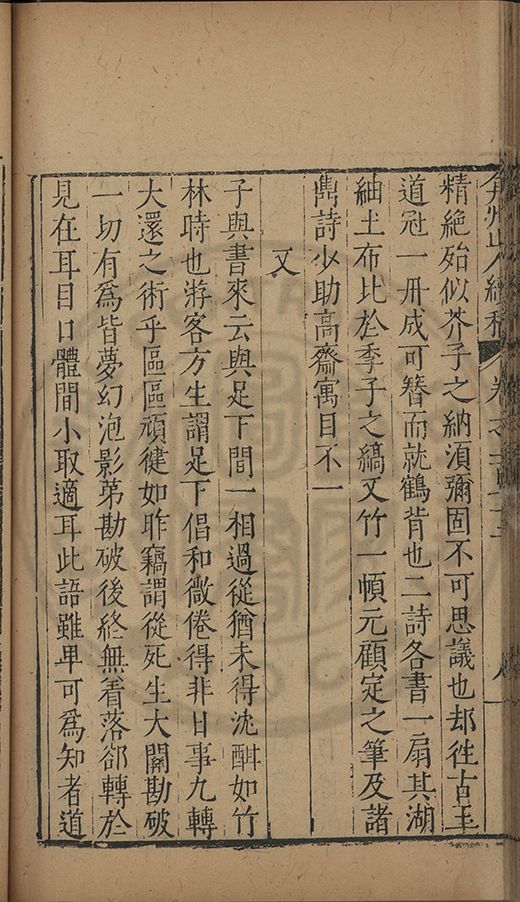 弇州山人續稿 卷之一百
精絶殆似芥子之納湏彌固不可思議也却徃古玉
道冠一冊成可簪而就鶴背也二詩各書一扇其湖
紬土布比於季子之縞又竹一幀元顧定之筆及諸
雋詩少助高齋寓目不一
又
子與書來云與足下間一相過從猶未得沈酣如竹
林時也游客方生謂足下倡和微倦得非日事九轉
大還之術乎區區頑健如昨竊謂從死生大關勘破
一切有為皆夢幻泡影苐勘破後終無着落郤轉於
見在耳目口體間小取適耳此語雖卑可為知者道